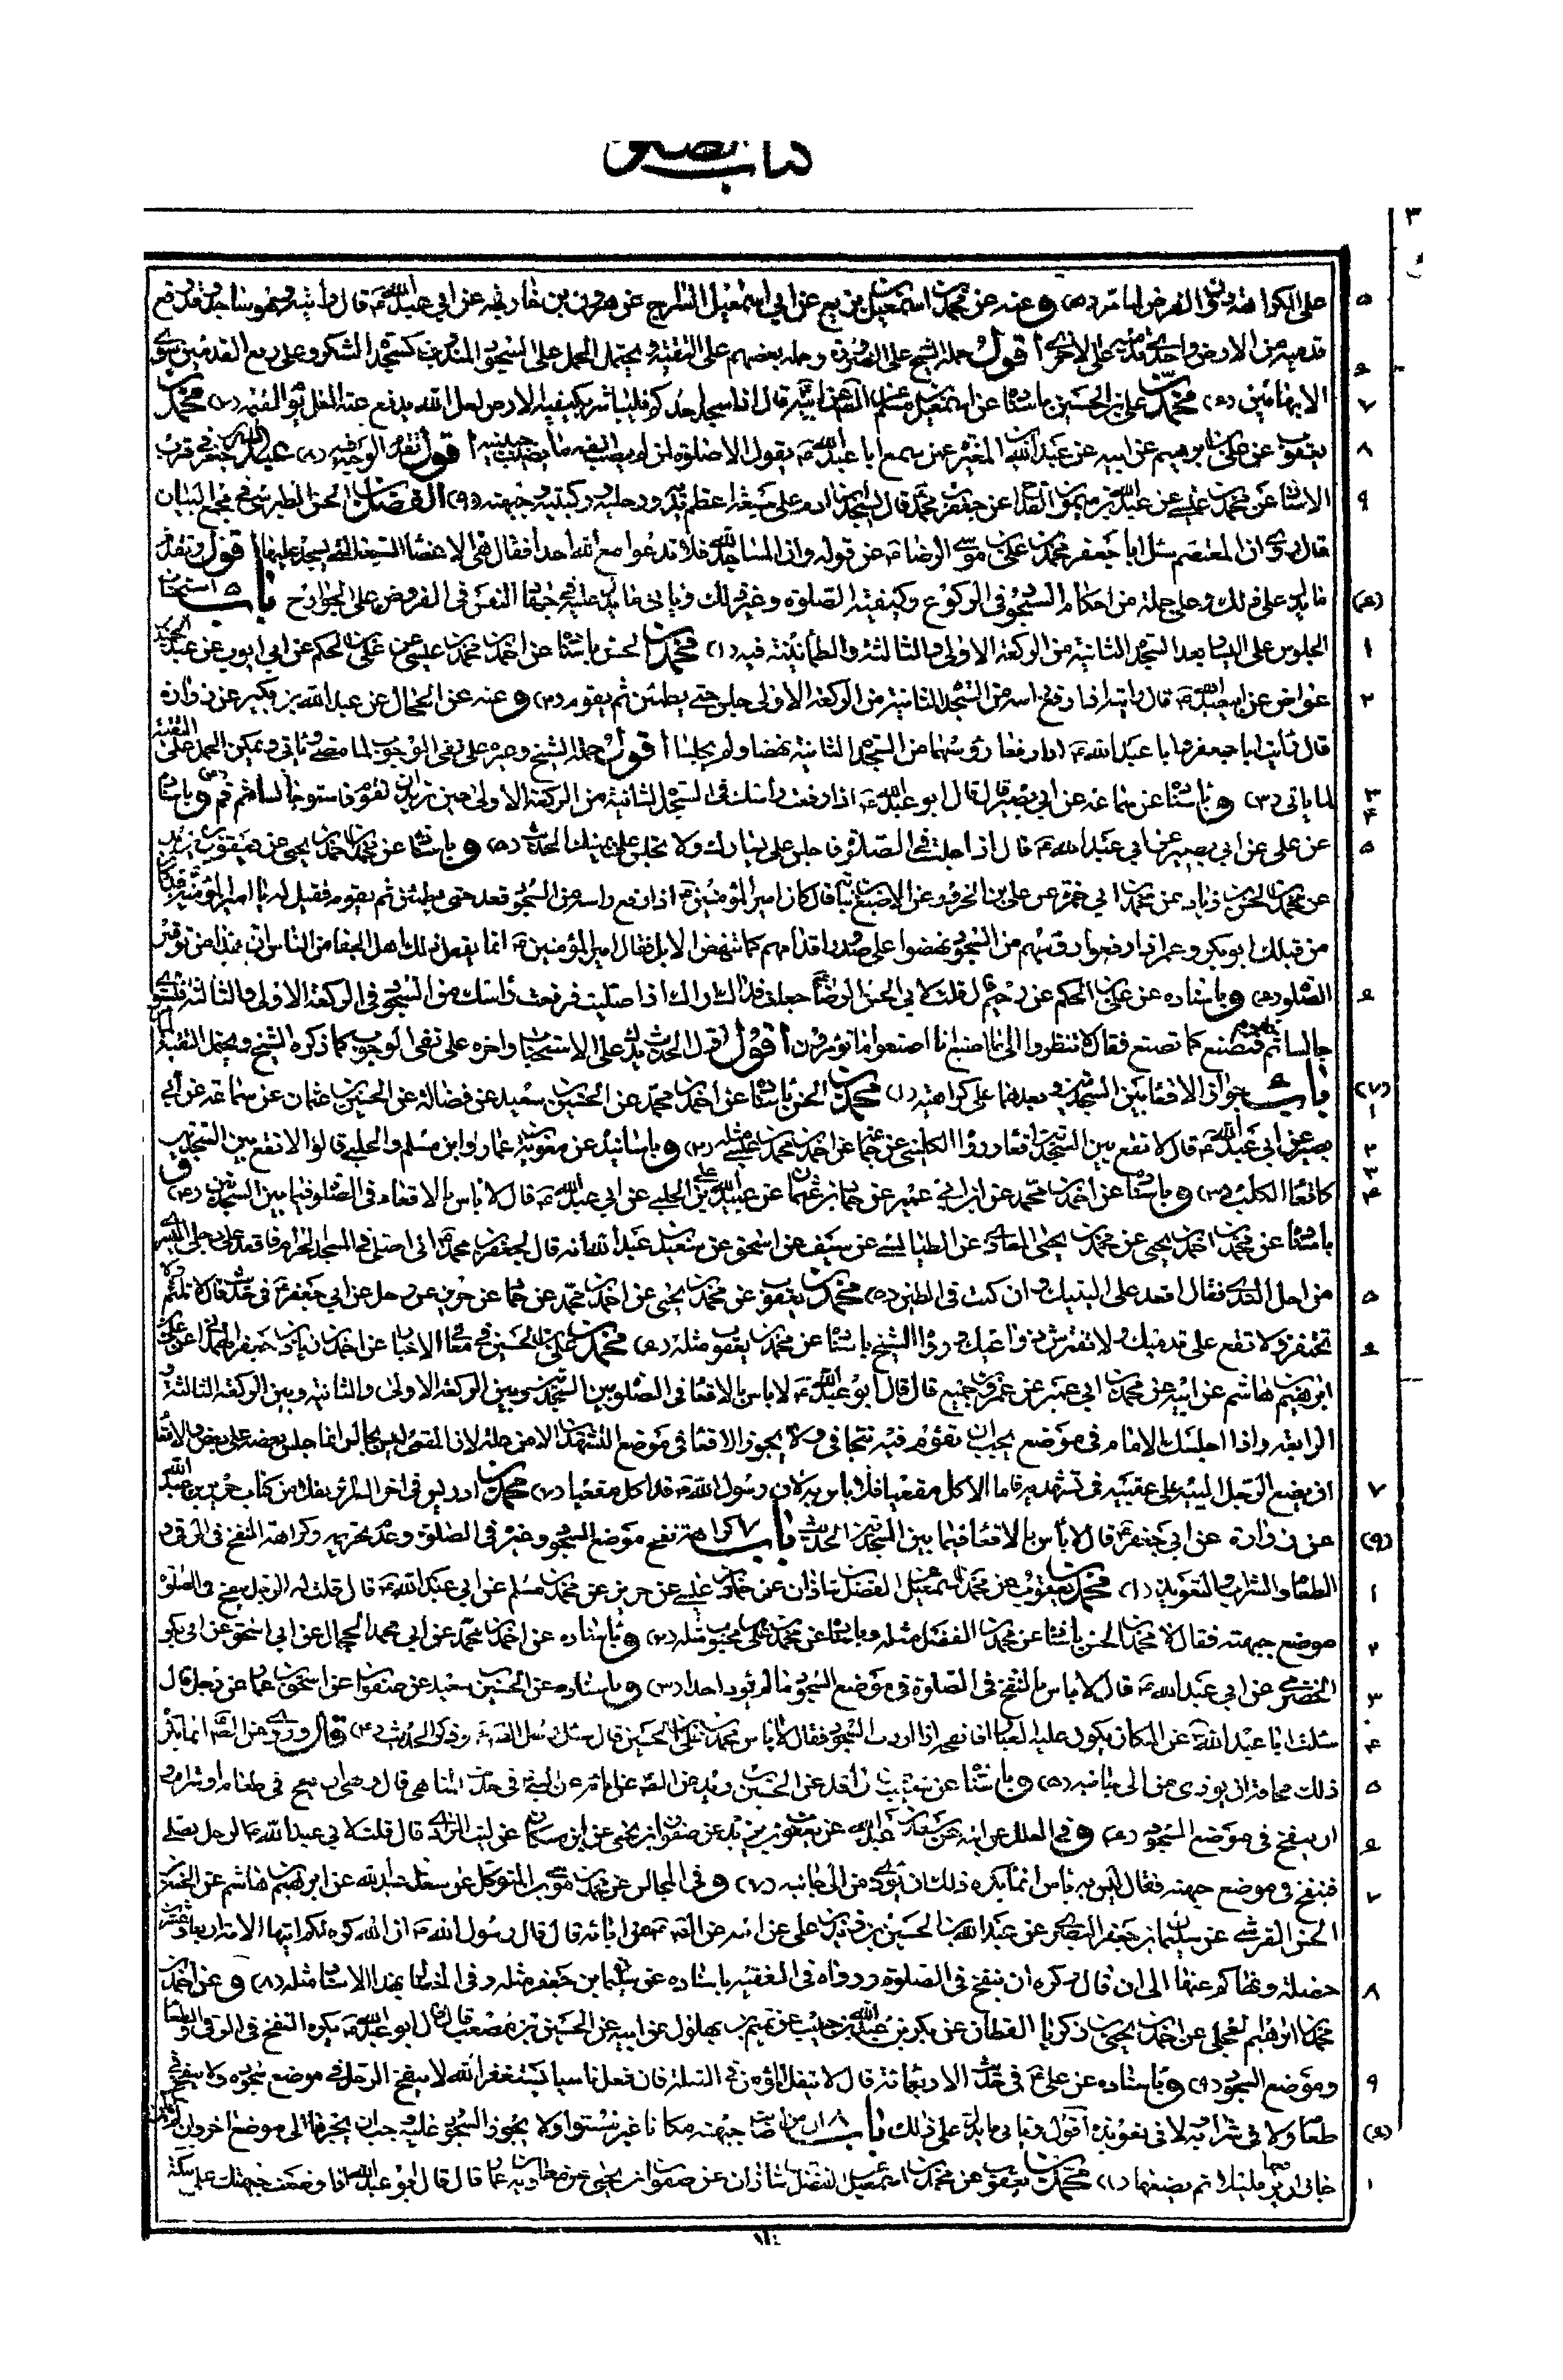 كتاب الصلوة
على الكراهة دون الفرض لما مر (٥) وعنه عن محمد بن اسمعيل بن بزيع عن ابي اسمعيل السراج عن هرون بن خارجة عن ابي عبد الله ع قال رأيته وهو ساجد وقد رفع
قدميه من الارض واحدى قدميه على الاخرى اقول حمله الشيخ على الضرورة وحمله بعضهم على التقية ويحتمل الحمل على السجود المندوب كسجدة الشكر وعلى رفع القدمين سوى
الابهامين (٦) محمد بن علي بن الحسين باسناده عن اسمعيل بن مسلم عن الصادق عن ابيه قال اذا سجد احدكم فليباشر بكفيه الارض لعل الله يدفع عنه الغل يوم القيمة (٧) محمد بن
يعقوب عن علي بن ابرهيم عن ابيه عن عبد الله بن المغيرة عمن سمع ابا عبد الله ع يقول لا صلوة لمن لم يصب انفه ما يصيب جبينه اقول تقدم الوجه فيه (٨) عبد الله بن جعفر في قرب
الاسناد عن محمد بن عيسى عن عبد الله بن ميمون القداح عن جعفر بن محمد قال يسجد ابن ادم على سبعة اعظم يديه ورجليه وركبتيه وجبهته (٩) الفضل بن الحسن الطبرسي في مجمع البيان
قال روى ان المعتصم سئل ابا جعفر محمد بن علي بن موسى الرضا ع عن قوله وان المساجد لله فلا تدعوا مع الله احدا فقال هي الاعضاء السبعة التي يسجد عليها اقول وتقدم
ما يدل على ذلك وعلى جملة من احكام السجود في الركوع وكيفية الصلوة وغير ذلك ويأتي ما يدل عليه في جهاد النفس في الفروض على الجوارح باب ٥ استحباب
الجلوس على اليسار بعد السجدة الثانية من الركعة الاولى والثالثة والطمأنينة فيه (١) محمد بن الحسن باسناده عن احمد بن محمد بن عيسى عن علي بن الحكم عن ابي ايوب عن عبد الحميد بن
عواض عن ابي عبد الله ع قال رايته اذا رفع راسه من السجدة الثانية من الركعة الاولى جلس حتى يطمئن ثم يقوم (٢) وعنه عن الحجال عن عبد الله بن بكير عن زرارة
قال رأيت ابا جعفر وابا عبد الله ع اذا رفعا رؤسهما من السجدة الثانية نهضا ولم يجلسا اقول حمله الشيخ وغيره على نفي الوجوب لما مضى ويأتي ويمكن الحمل على التقية
لما ياتي (٣) وباسناده عن سماعة عن ابي بصير قال قال ابو عبد الله ع اذا رفعت رأسك في السجدة الثانية من الركعة الاولى حين تريد ان تقوم فاستو جالسا ثم قم (٤) وباسناده
عن علي عن ابي بصير عن ابي عبد الله ع قال اذا جلست في الصلوة فاجلس على يسارك ولا تجلس على يمينك الحديث (٥) وباسناده عن محمد بن احمد بن يحيى عن يعقوب بن يزيد
عن محمد بن الحسن بن زياد عن محمد بن ابي حمزة عن علي بن الحزور عن الاصبغ بن نباتة قال كان امير المؤمنين ع اذا رفع راسه من السجود قعد حتى يطمئن ثم يقوم فقيل له يا امير المؤمنين قد كان
من قبلك ابو بكر وعمر اذا رفعوا رؤسهم من السجود نهضوا على صدور اقدامهم كما تنهض الابل فقال امير المؤمنين ع انما يفعل ذلك اهل الجفا من الناس ان هذا من توقير
الصلوة (٦) وباسناده عن علي بن الحكم عن رحيم قال قلت لابي الحسن الرضا ع جعلت فداك اراك اذا صليت فرفعت رأسك من السجود في الركعة الاولى والثالثة فتستوي
جالسا ثم تقوم فنصنع كما تصنع فقال لا تنظروا الى ما اصنع انا اصنعوا ما تؤمرون اقول اول الحديث يدل على الاستحباب واخره على نفي الوجوب كما ذكره الشيخ ويحتمل التقية
باب ٦ جواز الاقعاء بين السجدتين وبعدهما على كراهية (١) محمد بن الحسن باسناده عن احمد بن محمد عن الحسين بن سعيد عن فضالة عن الحسين بن عثمان عن سماعة عن ابي
بصير عن ابي عبد الله ع قال لا تقع بين السجدتين اقعاء ورواه الكليني عن جماعة عن احمد بن محمد بن عيسى مثله (٢) وباسانيده عن معوية بن عمار وابن مسلم والحلبي قالوا لا تقع بين السجدتين
كاقعاء الكلب (٣) وباسناده عن احمد بن محمد عن ابن ابي عمير عن حماد بن عثمان عن عبيد الله بن علي الحلبي عن ابي عبد الله ع قال لا باس بالاقعاء في الصلوة فيما بين السجدتين (٤) و
باسناده عن محمد بن احمد بن يحيى عن محمد بن يحيى المعاذي عن الطيالسي عن سيف عن اسحق عن سعيد بن عبد الله انه قال لجعفر بن محمد ع اني اصلي في المسجد الحرام فاقعد على رجلي اليسرى
من اجل الندى فقال اقعد على اليتيك وان كنت في الطين (٥) محمد بن يعقوب عن محمد بن يحيى عن احمد بن محمد عن حماد عن حريز عن رجل عن ابي جعفر ع في حديث قال لا تلثم ولا
تحتفز ولا تقع على قدميك ولا تفترش ذراعيك ورواه الشيخ باسناده عن محمد بن يعقوب مثله (٦) محمد بن علي بن الحسين في معاني الاخبار عن احمد بن زياد بن جعفر الهمداني عن علي بن
ابرهيم بن هاشم عن ابيه عن محمد بن ابي عمير عن عمرو بن جميع قال قال ابو عبد الله ع لا باس بالاقعاء في الصلوة بين السجدتين وبين الركعة الاولى والثانية وبين الركعة الثالثة و
الرابعة واذا اجلسك الامام في موضع يجب ان تقوم فيه تتجافى ولا يجوز الاقعاء في موضع التشهدين الا من علة لان المقعي ليس بجالس انما جلس بعضه على بعض والاقعاء
ان يضع الرجل اليتيه على عقبيه في تشهديه فاما الاكل مقعيا فلا باس به لان رسول الله ص قد اكل مقعيا (٧) محمد بن ادريس في اخر السرائر نقلا من كتاب حريز بن عبد الله
عن زرارة عن ابي جعفر ع قال لا بأس بالاقعاء فيما بين السجدتين الحديث باب ٧ كراهة نفخ موضع السجود وغيره في الصلوة وعدم تحريمه وكراهة النفخ في الرقى و
الطعام والشراب والتعويذ (١) محمد بن يعقوب عن محمد بن اسمعيل عن الفضل بن شاذان عن حماد بن عيسى عن حريز عن محمد بن مسلم عن ابي عبد الله ع قال قلت له الرجل ينفخ في الصلوة
موضع جبهته فقال لا محمد بن الحسن باسناده عن محمد بن الفضل مثله وباسناده عن محمد بن علي بن محبوب مثله (٢) وباسناده عن احمد بن محمد عن ابي محمد الحجال عن ابي اسحق عن ابي بكر
الحضرمي عن ابي عبد الله ع قال لا باس بالنفخ في الصلوة في موضع السجود ما لم يؤذ احدا (٣) وباسناده عن الحسين بن سعيد عن صفوان عن اسحق بن عمار عن رجل قال
سئلت ابا عبد الله ع عن المكان يكون عليه الغبار افانفخه اذا اردت السجود فقال لا باس محمد بن علي بن الحسين قال سئل رجل الصادق ع وذكر الحديث (٤) قال وروى عن الصادق ع انما يكره
ذلك مخافة ان يوذى من الى جانبه (٥) وباسناده عن شعيب بن واقد عن الحسين بن زيد عن الصادق عن ابائه عن النبي ص في حديث المناهي قال ونهى ان ينفخ في طعام او شراب و
ان ينفخ في موضع السجود (٦) وفي العلل عن ابيه عن سعد بن عبد الله عن يعقوب بن يزيد عن صفوان بن يحيى عن ابن مسكان عن ليث المرادي قال قلت لابي عبد الله ع الرجل يصلي
فينفخ في موضع جبهته فقال ليس به بأس انما يكره ذلك ان يؤذي من الى جانبه (٧) وفي المجالس عن محمد بن موسى بن المتوكل عن سعد بن عبد الله عن ابرهيم بن هاشم عن الحسين بن
الحسن القرشي عن سليمان بن جعفر البصري عن عبد الله بن الحسين بن زيد بن علي عن ابيه عن الصادق ع عن ابائه قال قال رسول الله ص ان الله كره لكم ايتها الامة اربعا وعشرين
خصلة ونهاكم عنها الى ان قال وكره ان ينفخ في الصلوة ورواه في الفقيه باسناده عن سليمان بن جعفر مثله وفي الخصال بهذا الاسناد مثله (٨) وعن احمد بن
محمد بن ابرهيم العجلي عن احمد بن يحيى بن زكريا القطان عن بكر بن عبد الله بن حبيب عن تميم بن بهلول عن ابيه عن الحسين بن مصعب قال قال ابو عبد الله ع يكره النفخ في الرقى والطعام
وموضع السجود (٩) وباسناده عن علي ع في حديث الاربعمائة قال لا يتفل المؤمن في القبلة فان فعل ناسيا يستغفر الله لا ينفخ الرجل في موضع سجوده ولا ينفخ في
طعامه ولا في شرابه ولا في تعويذه اقول ويأتي ما يدل على ذلك باب ٨ ان من اصابت جبهته مكانا غير مستو او لا يجوز السجود عليه جب ان يجرها الى موضع اخر
(١) محمد بن يعقوب عن محمد بن اسمعيل عن الفضل بن شاذان عن صفوان بن يحيى عن معاوية بن عمار قال قال ابو عبد الله ع اذا وضعت جبهتك على نبكة